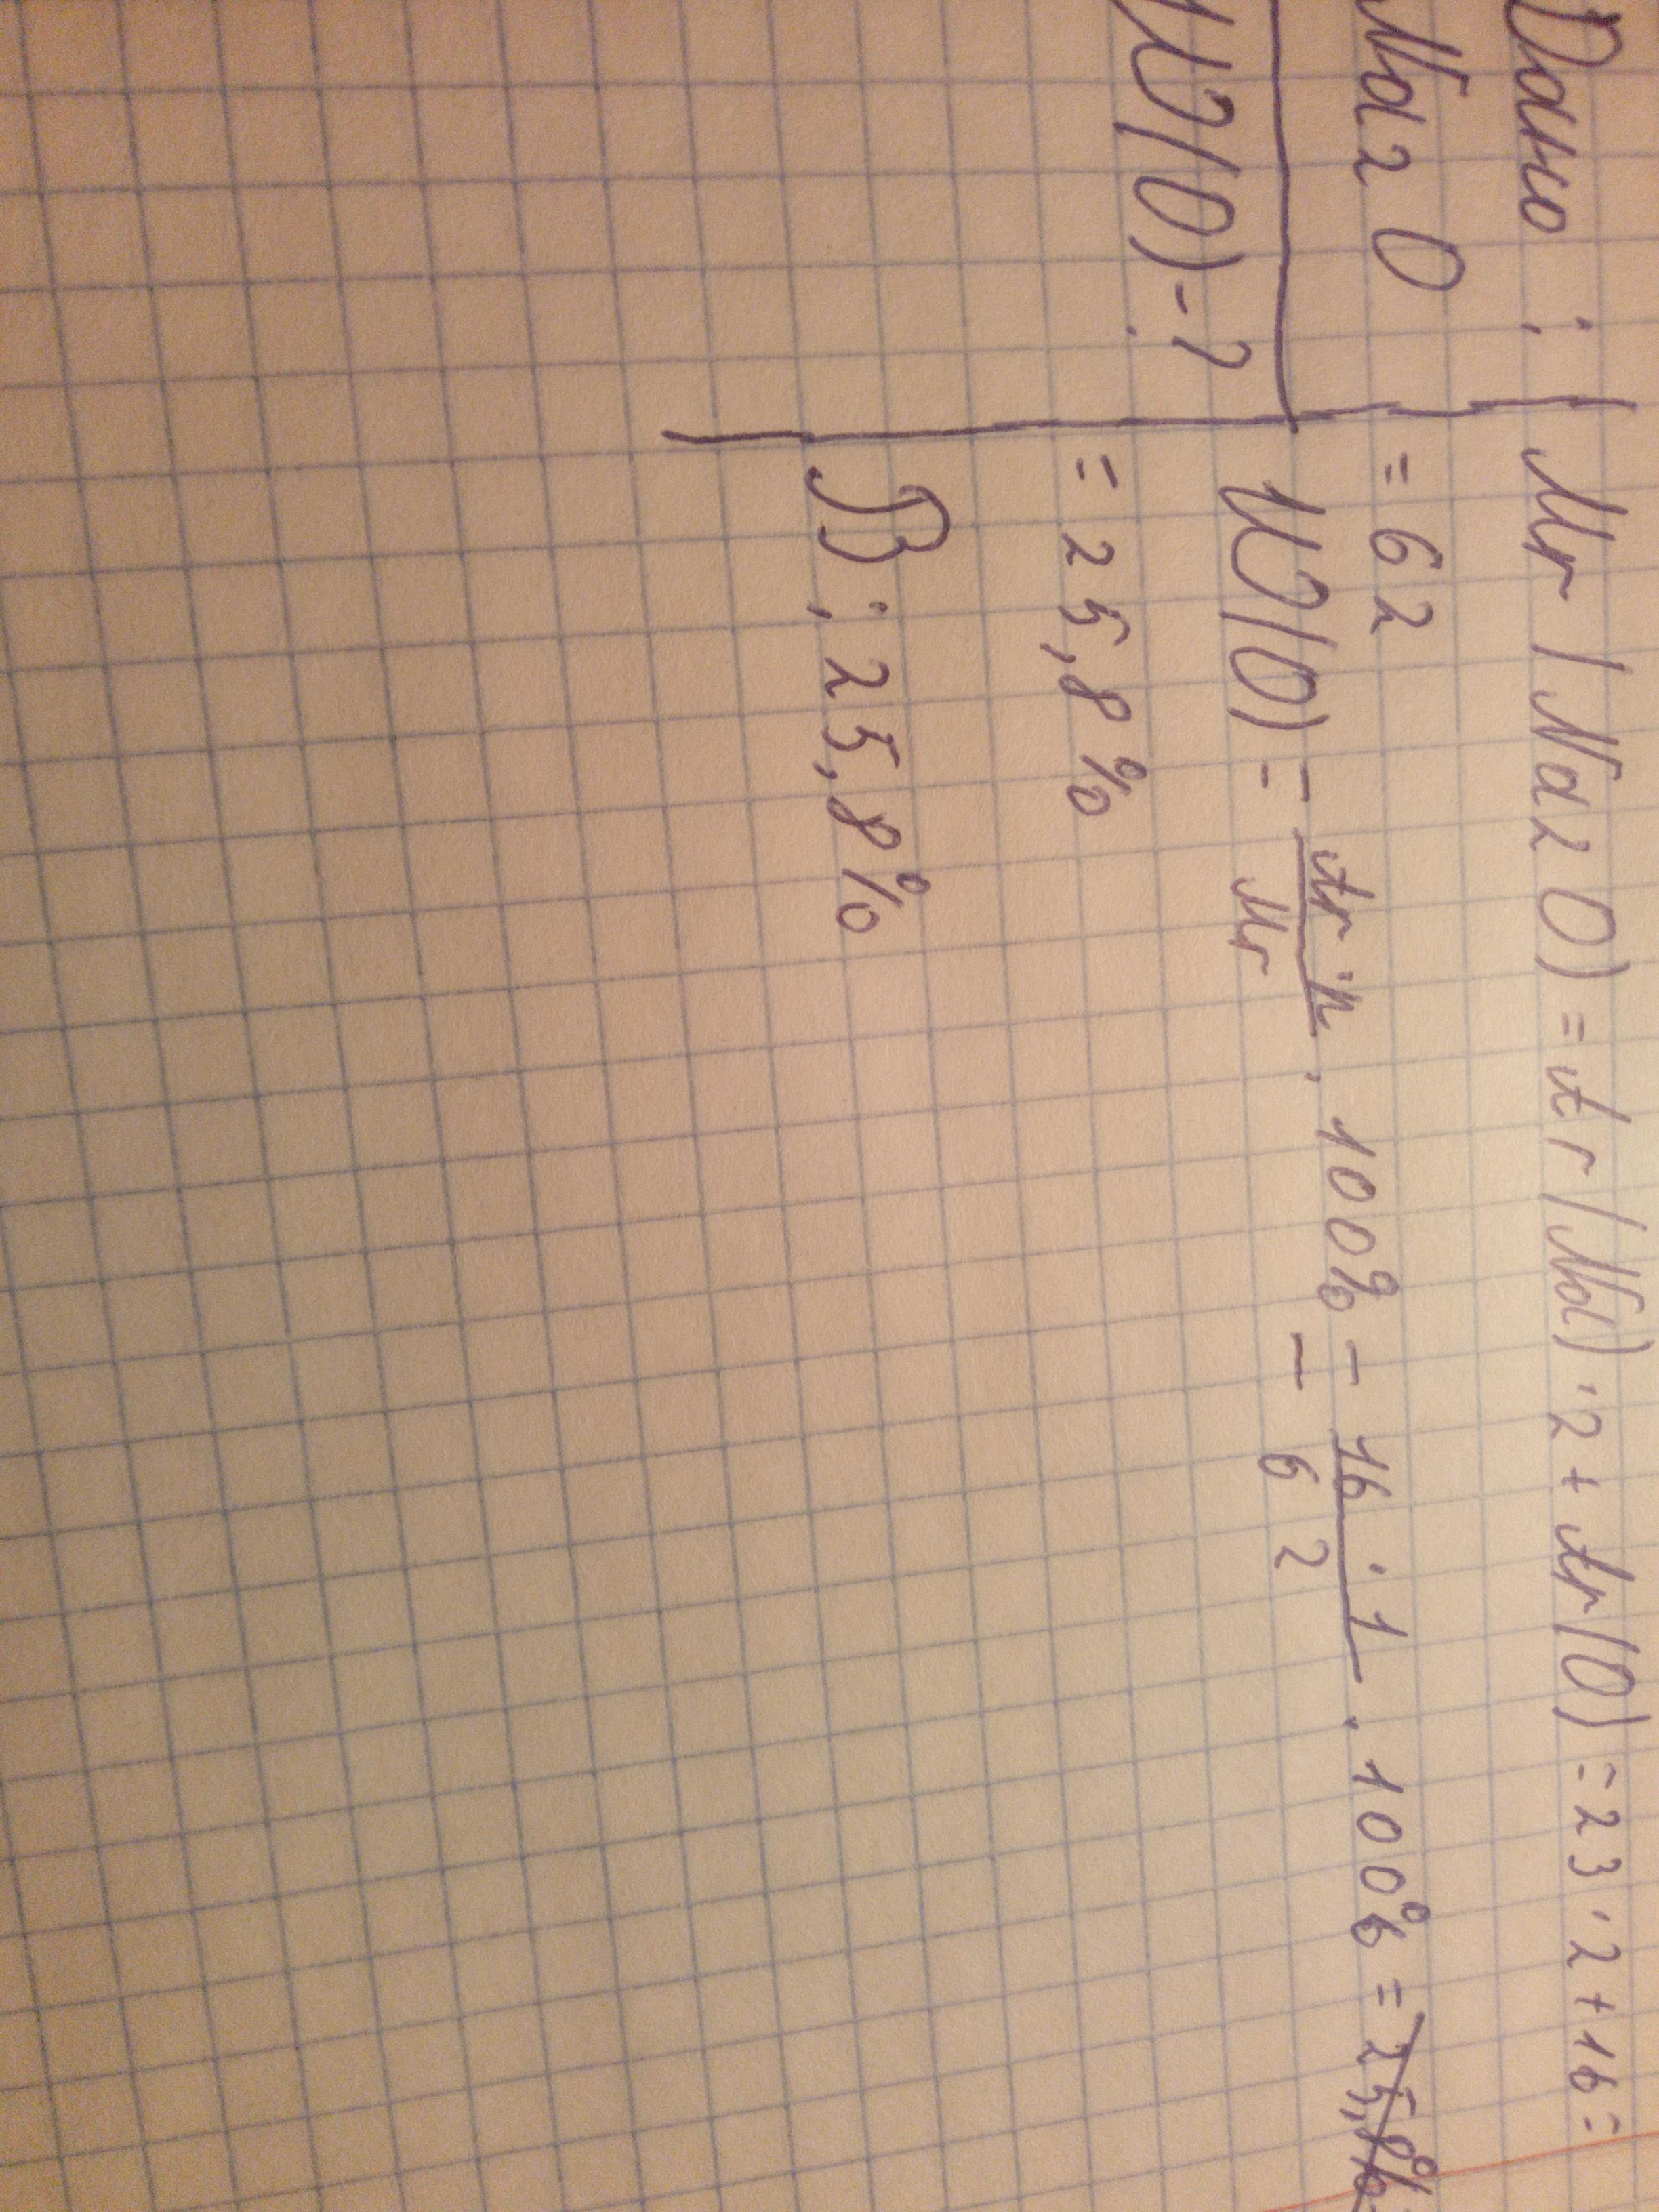 Дано:
Na2O
W(O)-?
Mr(Na2O)=Ar(Na)·2+Ar(O)=23·2+16=
=62
W(O)=Ar·n/Mr·100%=16·1/62·100%=25,8%
=25,8%
В: 25,8%